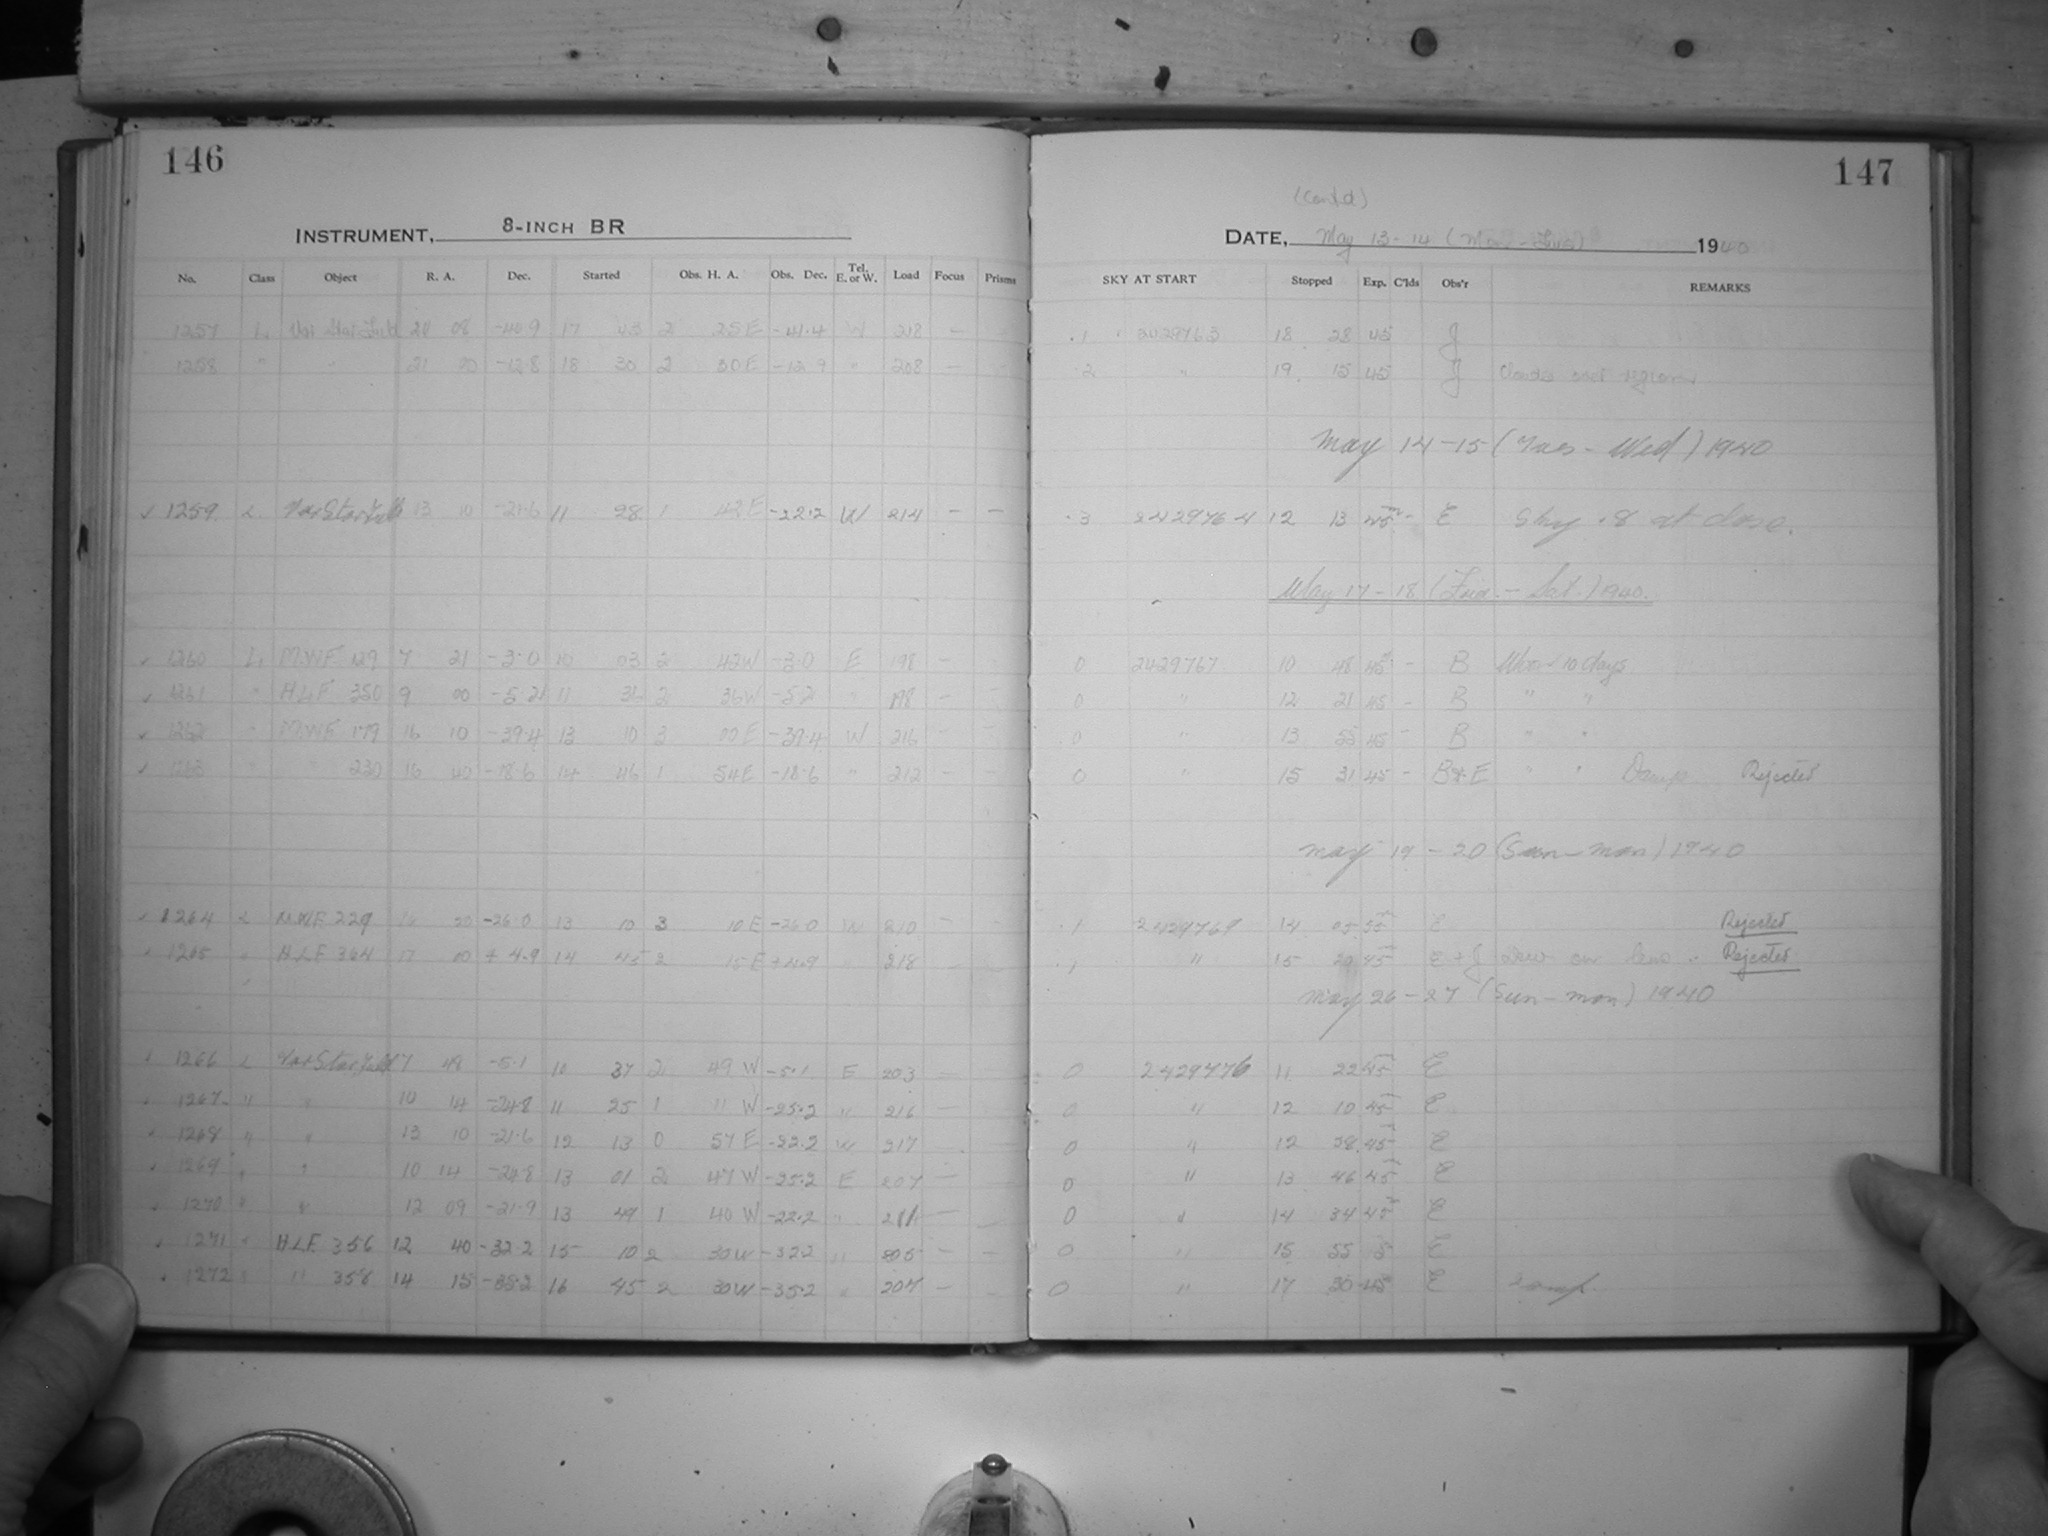 146
INSTRUMENT, 8-INCH BR
No. Class Object R. A. Dec. Started Obs. H. A. Obs. Dec. Tel. E. or W. Load Focus Prisms
1257 L Var Star Field 20 08 -40.9 17 43 2 25 E -41.4 W 218 —
1258 " " 21 00 -12.8 18 30 2 30 E -12.9 " 208 —
✓ 1259 L Var Star Field 13 10 -21.6 11 28 1 42 E -22.2 W 214 — —
✓ 1260 L M.W.F. 129 7 21 -3.0 10 03 2 43 W -3.0 E 198 —
✓ 1261 " H.L.F. 350 9 00 -5.2 11 36 2 36 W -5.2 " 198 — —
✓ 1262 " M.W.F. 179 16 10 -39.4 13 10 3 00 E -39.4 W 216 — —
✓ 1263 " " 230 16 40 -18.6 14 46 1 54 E -18.6 " 212 — —
✓ 1264 L M.W.F. 229 16 20 -26.0 13 10 3 10 E -26.0 W 210 —
✓ 1265 " H.L.F. 364 17 00 + 4.9 14 45 2 15 E +4.9 " 218 —
1266 L Var Star Field 7 48 -5.1 10 37 2 49 W -5.1 E 203 —
1267 " " 10 14 -24.8 11 25 1 11 W -25.2 " 216 —
1268 " " 13 10 -21.6 12 13 0 57 E -22.2 W 217
1269 " " 10 14 -24.8 13 01 2 47 W -25.2 E 207 —
1270 " " 12 09 -21.9 13 49 1 40 W -22.2 " 211 —
1271 " H.L.F. 356 12 40 -32.2 15 10 2 30 W -32.2 " 205 — —
1272 " " 358 14 15 -35.2 16 45 2 30 W -35.2 " 207 —
147
(Cont'd)
DATE, May 13-14 (Mon-Tues) 1940
SKY AT START Stopped Exp. C'lds Obs'r REMARKS
.1 2429763 18 28 45 J
.2 " 19 15 45 J Clouds over region
May 14-15 (Tues-Wed) 1940
.3 2429764 12 13 45 - E Sky .8 at close.
May 17-18 (Frid.-Sat.) 1940.
0 2429767 10 48 45 - B Moon 10 days
0 " 12 21 45 - B " "
0 " 13 55 45 - B " "
0 " 15 31 45 - B+E " " Damp Rejected
May 19-20 (Sun-Mon) 1940
.1 2429769 14 05 55 E Rejected
.1 " 15 45 E+J Dew on lens. Rejected
May 26-27 (Sun-Mon) 1940
0 2429776 11 22 45 E
0 " 12 10 45 E
0 " 12 58 45 E
0 " 13 46 45 E
0 " 14 34 45 E
0 " 15 55 E
0 " 17 30 45 E Damp.